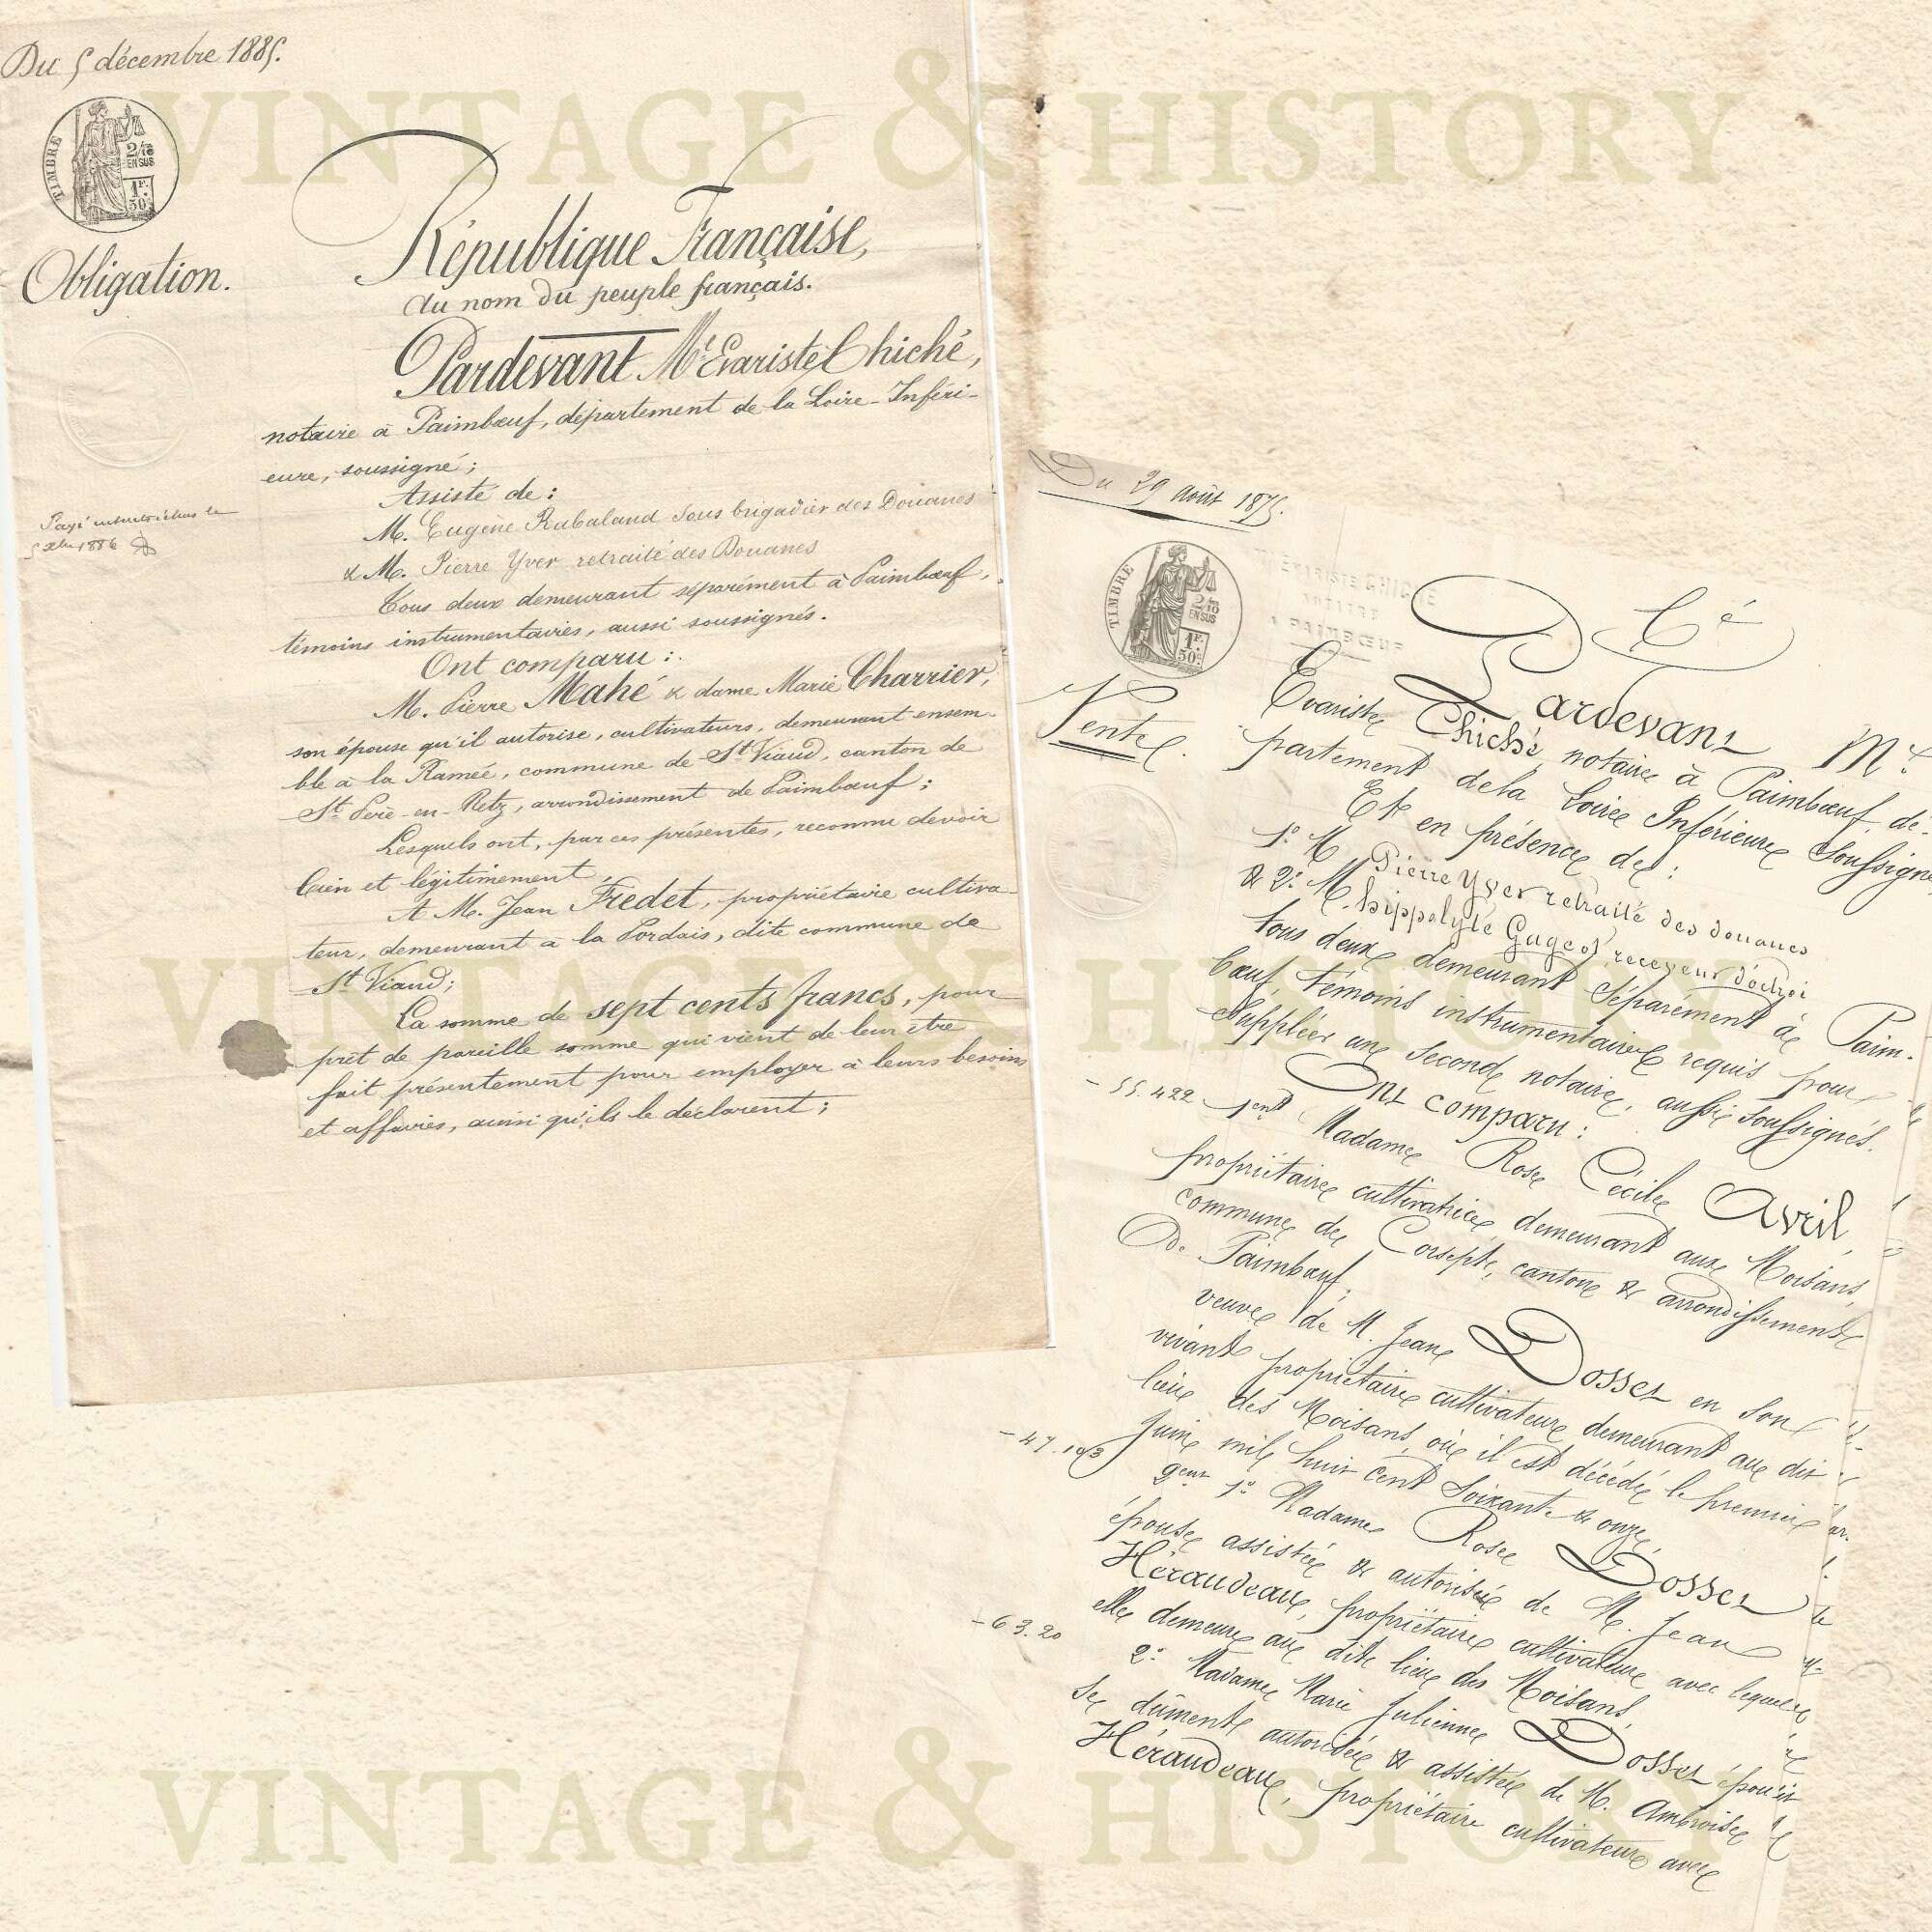 VINTAGE & HISTORY
Du 5 décembre 1885.
TIMBRE
2/10
EN SUS
1F.
50c
Obligation.
République Française,
Au nom du peuple français.
Pardevant Me. Evariste Chiché,
notaire à Paimbœuf, département de la Loire-Inféri-
eure, soussigné;
Assisté de:
M. Eugène Rabaland sous brigadier des Douanes
& M. Pierre Yver retraité des Douanes
Tous deux demeurant séparément à Paimbœuf,
témoins instrumentaires, aussi soussignés.
Ont comparu:
M. Pierre Mahé & dame Marie Charrier,
son épouse qu'il autorise, cultivateurs, demeurant ensem-
ble à la Ramée, commune de St. Viaud, canton de
St. Père-en-Retz, arrondissement de Paimbœuf;
Lesquels ont, par ces présentes, reconnu devoir
bien et légitimement,
A M. Jean Fredet, propriétaire cultiva-
teur, demeurant à la Pordais, dite commune de
St. Viaud;
La somme de sept cents francs, pour
prêt de pareille somme qui vient de leur être
fait présentement pour employer à leurs besoins
et affaires, ainsi qu'ils le déclarent;
Payé
1886
Du 29 août 1875.
TIMBRE
2/10
EN SUS
1F.
50c
EVARISTE CHICHÉ
NOTAIRE
A PAIMBŒUF
Cé
Vente.
Pardevant Me.
Evariste Chiché, notaire à Paimbœuf, dé-
partement de la Loire Inférieure soussigné
Et en présence de:
1°. M. Pierre Yver retraité des douanes
& 2°. M. hippolyte Gugeot receveur d'octroi
tous deux demeurant séparément à Paim-
bœuf, témoins instrumentaires requis pour
suppléer un second notaire, aussi soussignés.
Ont comparu:
- 55.422
1ent Madame Rose Cécile Avril,
propriétaire cultivatrice, demeurant aux Moisans,
commune de Corsept, canton & arrondissement
De Paimbœuf,
veuve de M. Jean Dosset en son
vivant propriétaire cultivateur demeurant au dit
lieu des Moisans, où il est décédé le premier
Juin mil huit cent soixante & onze,
- 47.103
2ent 1° Madame Rose Dosset
épouse assistée & autorisée de M. Jean
Héraudeau, propriétaire cultivateur avec lequel
elle demeure au dit lieu des Moisans,
- 63.20
2°. Madame Marie Julienne Dosset épou-
se dûment autorisée & assistée de M. Ambroise
Héraudeau, propriétaire cultivateur avec
VINTAGE & HISTORY
VINTAGE & HISTORY